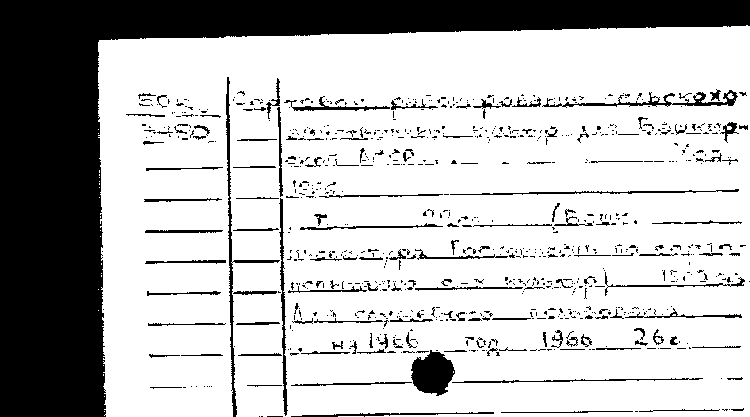 50к Сортовое районирование сельскохо-
3450 зяйственных культур для Башкир-
ской АССР. Уфа,
1966.
т. 22см. (Башк.
инспектура Госкомиссии по сорто-
испытанию с-х культур)
Для служебного пользования.
на 1966 год 1966 26с